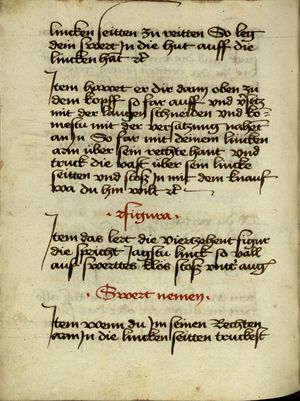 lincken seitten zu reitten So leg
dein swert In die hut auff die
lincken hat rc
Item hawet er dir dann oben zu
dem kopff so far auff vnd vsetz
mit der langen schneiden vnd ko-
mestu mit der versatzung nahet
an In So far mit deinem lincken
arm über sein rechte hant vnd
truck die vast über sein lincke
seitten vnd stoß In mit dem knauf
wa du hin wilt rc
figura
Item das lert die viertzehent figur
die spricht Jag linck so vall
auf swerttes klos stoß
Swert nemen
Item wenn du Im seinen Rechten
arm In die lincken seitten truckest